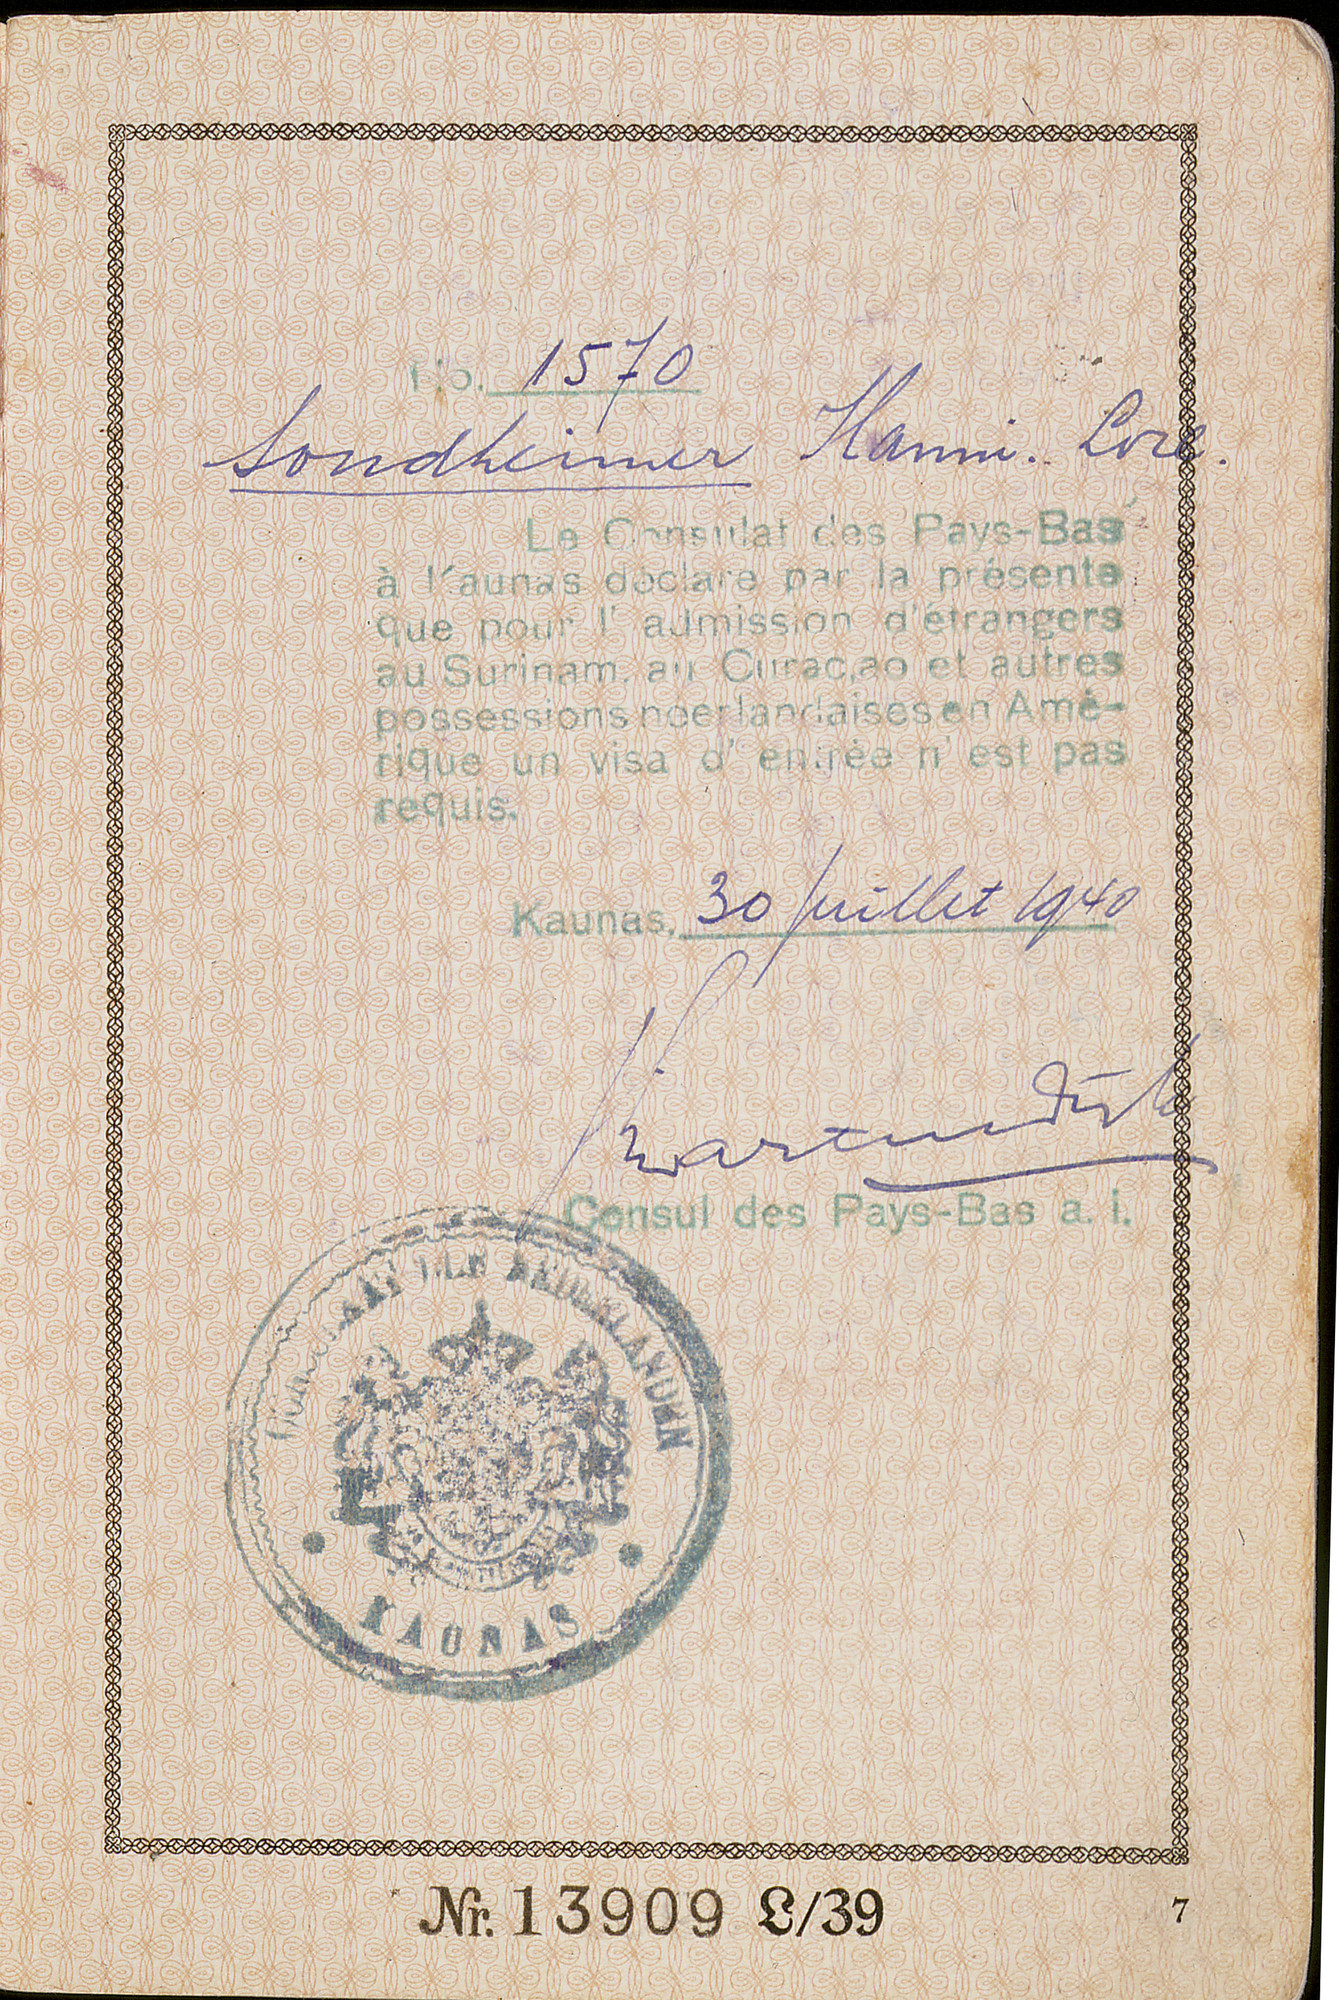 No. 1570
Sondheimer Hanni. Lore.
Le Consulat des Pays-Bas
à Kaunas déclare par la présente
que pour l' admission d'étrangers
au Surinam, au Curaçao et autres
possessions néerlandaises en Amé-
rique un visa d' entrée n' est pas
requis.
Kaunas, 30 juillet 1940
Consul des Pays-Bas a. i.
CONSULAAT DER NEDERLANDEN
KAUNAS
Nr. 13909 L/39
7